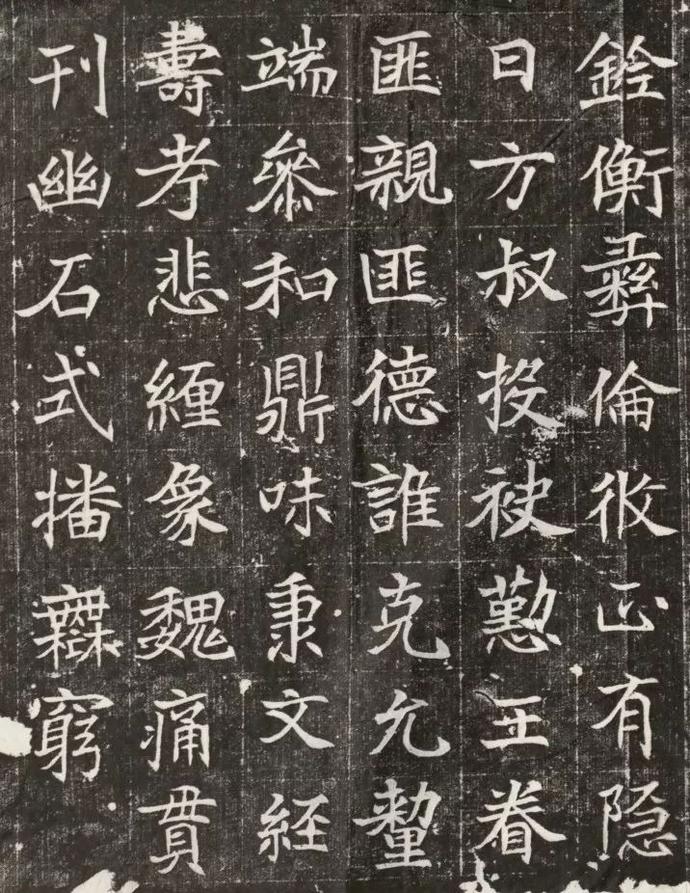 銓衡彝倫攸正有隐
日方叔投袂懃王眷
匪親匪德誰克允釐
端叅和鼎味秉文經
壽考悲緾象魏痛貫
刊幽石式播無窮